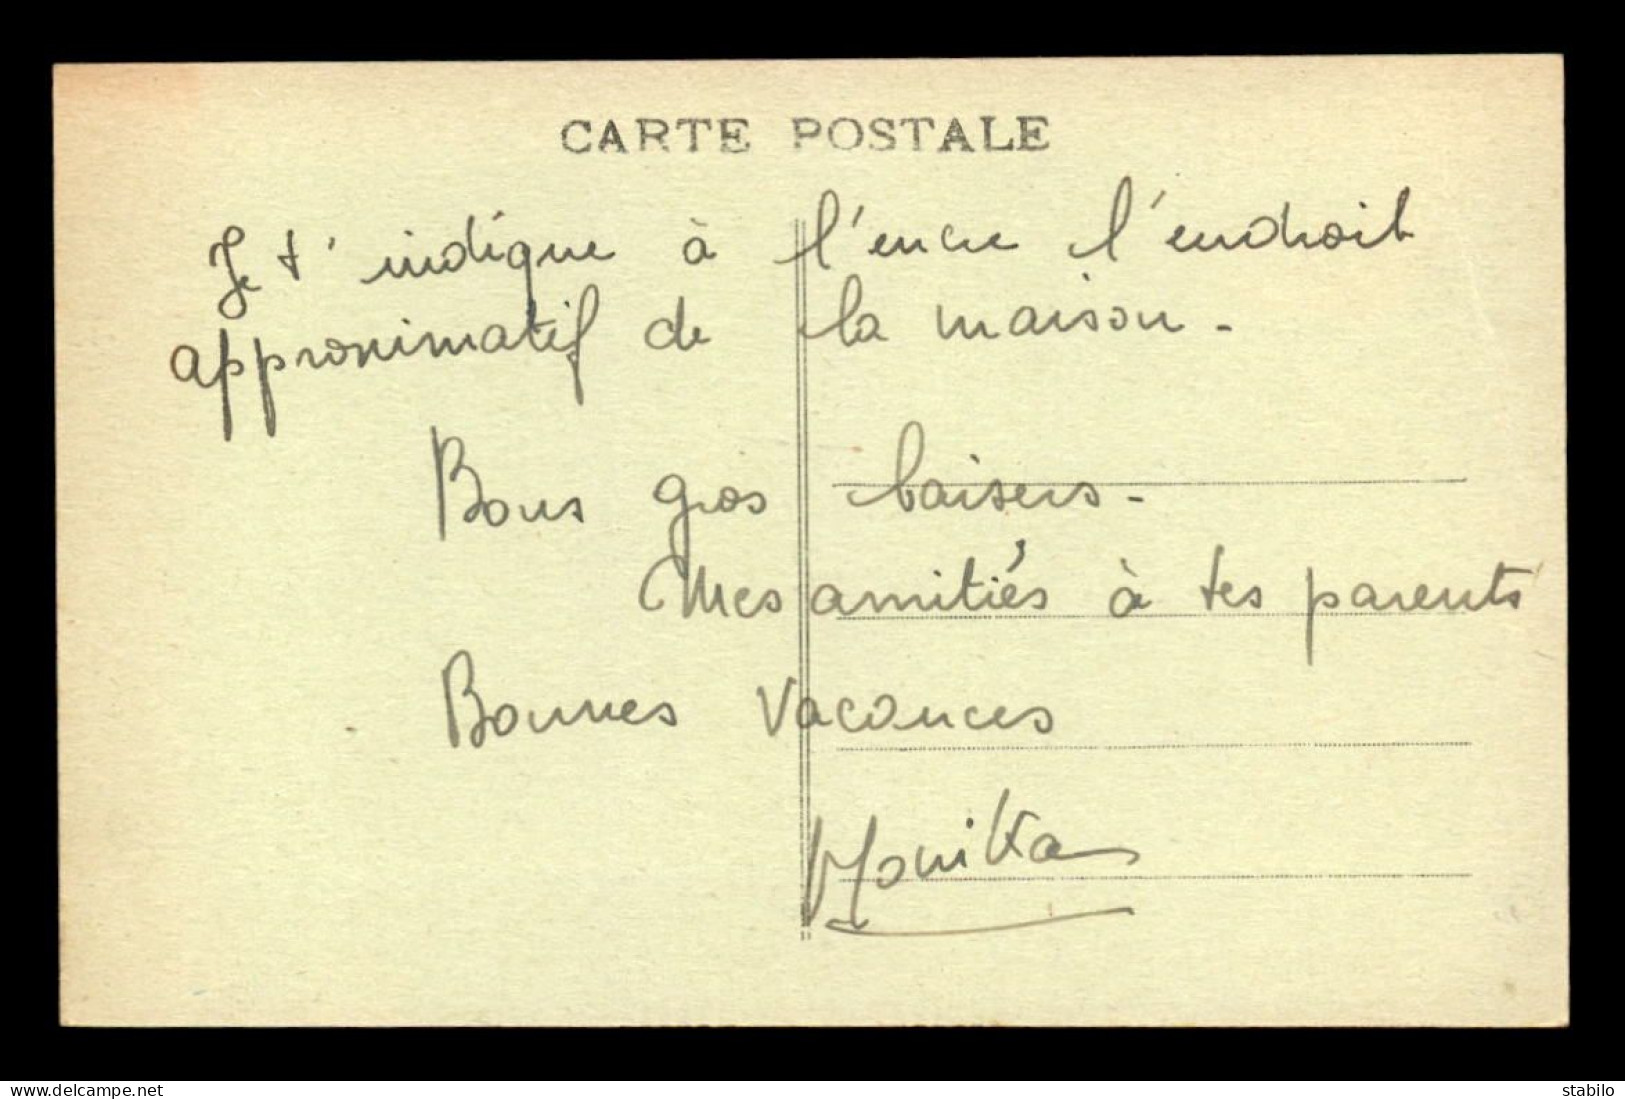 CARTE POSTALE
Je t'indique à l'encre l'endroit
approximatif de la maison.
Bons gros baisers.
Mes amitiés à tes parents
Bonnes Vacances
Monika
www.delcampe.net
stabilo